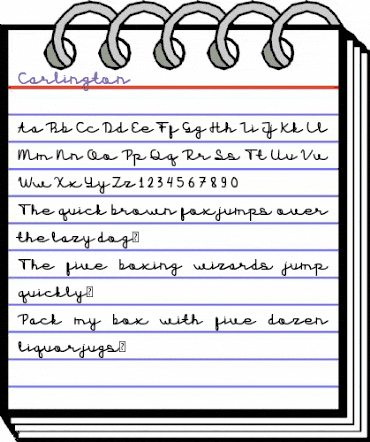 Carlington
Aa Bb Cc Dd Ee Ff Gg Hh Ii Jj Kk Ll
Mm Nn Oo Pp Qq Rr Ss Tt Uu Vv
Ww Xx Yy Zz 1 2 3 4 5 6 7 8 9 0
The quick brown fox jumps over
the lazy dog
The five boxing wizards jump
quickly
Pack my box with five dozen
liquor jugs